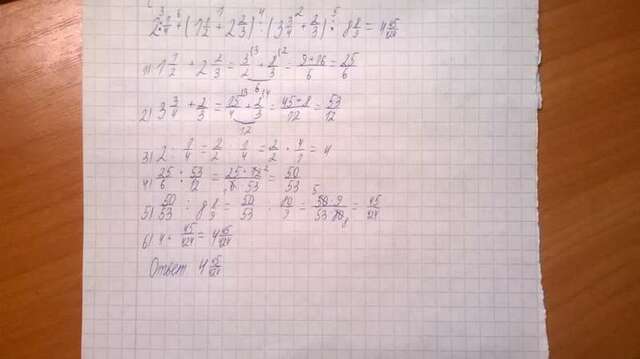 2 : 1/4 + (1 1/2 + 2 2/3) : (3 3/4 + 2/3) : 8 8/9 = 4 45/424
1) 1 1/2 + 2 2/3 = 3/2 + 8/3 = 9+16/6 = 25/6
2) 3 3/4 + 2/3 = 15/4 + 2/3 = 45+8/12 = 53/12
3) 2 : 1/4 = 2/2 : 1/4 = 2/2 · 4/1 = 4
4) 25/6 : 53/12 = 25·12/6·53 = 50/53
5) 50/53 : 8 8/9 = 50/53 : 80/9 = 50·9/53·80 = 45/424
6) 4 + 45/424 = 4 45/424
Ответ 4 45/424